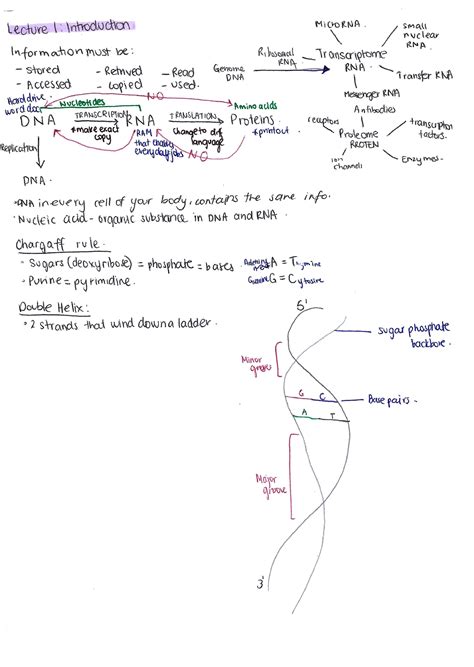 Lecture 1: Introduction
Information must be:
- stored - Retrived - Read
- Accessed - copied - used.
Genome DNA
Ribosomal RNA
MicroRNA
small nuclear RNA.
Transcriptome RNA
Transfer RNA
Messenger RNA
Antibodies
receptors
transcription factors.
Proteome PROTEIN
ion channels
Enzymes.
Hard drive
word doc
Nucleotides
NO
Amino acids
DNA TRANSCRIPTION RNA TRANSLATION Proteins.
*make exact copy
RAM
that
everyday jobs
change to diff language
*printout
NO
Replication
DNA.
DNA in every cell of your body, contains the same info.
Nucleic acid - organic substance in DNA and RNA.
Chargaff rule.
• Sugars (deoxyribose) = phosphate = bases.
A = Thymine
• Purine = pyrimidine.
G = Cytosine
Double Helix:
• 2 strands that wind down a ladder.
5'
sugar phosphate backbone.
Minor groove
G C
Base pairs.
A T
Major groove
3'